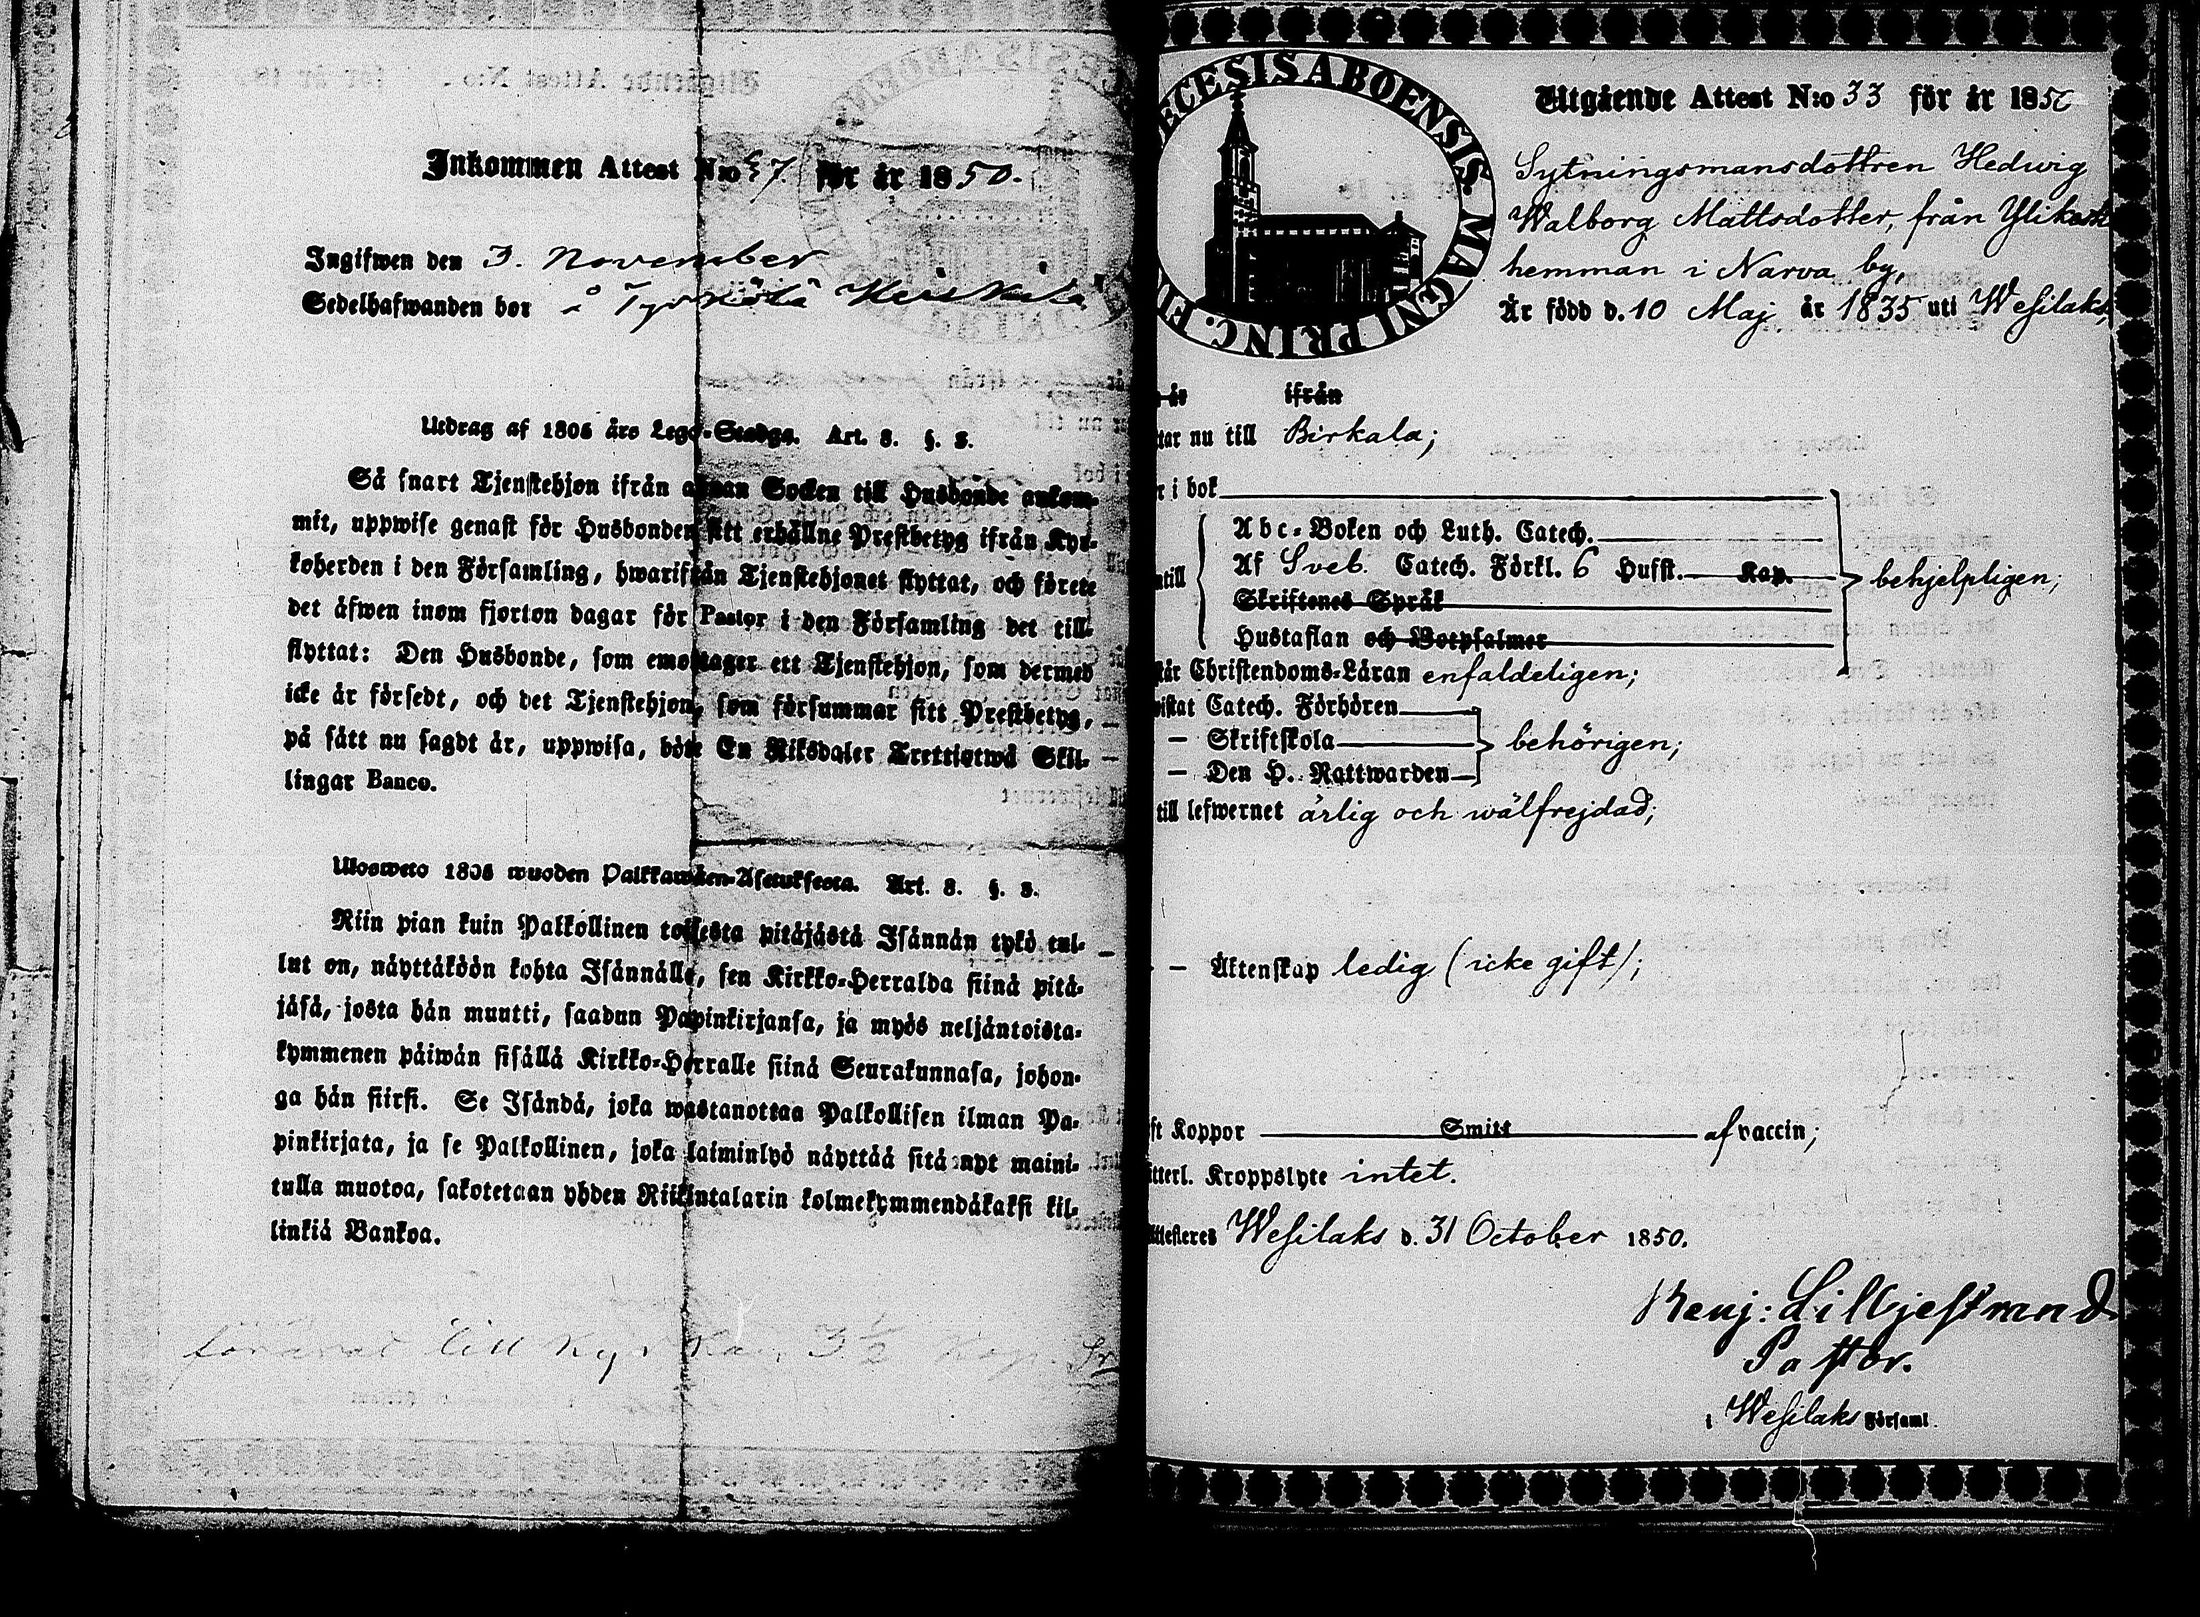 Inkommen Attest N:o 57. för år 1850.
Ingifwen den 3. November
Sedelhafwanden bor i Tyrkölä
Utdrag af 1805 års Lego-Stadga. Art. 8. §. 3.
Så snart Tjenstehjon ifrån annan Socken till Husbonde ankom-
mit, uppwise genast för Husbonden sitt erhållne Prestbetyg ifrån Kyr-
koherden i den Församling, hwarifrån Tjenstehjonet flyttat, och förete
det äfwen inom fjorton dagar för Pastor i den Församling det till-
flyttat: Den Husbonde, som emottager ett Tjenstehjon, som dermed
icke är försedt, och det Tjenstehjon, som försummar sitt Prestbetyg,
på sätt nu sagdt är, uppwisa, böte En Riksdaler Trettiotwå Skil-
lingar Banco.
Ulosweto 1805 wuoden Palkkawäen-Asetuksesta. Art. 8. §. 3.
Niin pian kuin Palkollinen toisesta pitäjästä Isännän tykö tul-
lut on, näyttäköön kohta Isännälle, sen Kirkko-Herralda siinä pitä-
jäsä, josta hän muutti, saadun Papinkirjansa, ja myös neljäntoista-
kymmenen päiwän sisällä Kirkko-Herralle siinä Seurakunnasa, johon-
ga hän siirsi. Se Isändä, joka wastanottaa Palkollisen ilman Pa-
pinkirjata, ja se Palkollinen, joka laiminlyö näyttää sitä nyt maini-
tulla muotoa, sakotetaan yhden Riikintalarin kolmekymmendäkaksi kil-
linkiä Bankoa.
till Kyrkan 3 1/2
ECESIS ABOENSIS. MAGNI PRINC. FI
Utgående Attest N:o 33 för år 1850
Sytningsmansdottren Hedwig
Walborg Mattsdotter, från
hemman i Narva by,
Är född d. 10 Maj år 1835 uti Wesilaks,
år ifrån
tar nu till Birkala;
r i bok
Abc-Boken och Luth. Catech.
ntill Af Sveb. Catech. Förkl. 6 Hufst. Kap. behjelpligen;
Skriftenes Språk
Hustaflan och Botpsalmer
tår Christendoms-Läran enfaldeligen;
wistat Catech. Förhören
— Skriftskola behörigen;
— Den H. Nattwarden
till lefwernet ärlig och wälfrejdad;
— Äktenskap ledig (icke gift);
ft Koppor Smitt af vaccin;
itterl. Kroppslyte intet.
Attesteres Wesilaks d. 31 October 1850.
Benj: Lilljestrand
Pastor.
i Wesilaks Församl.